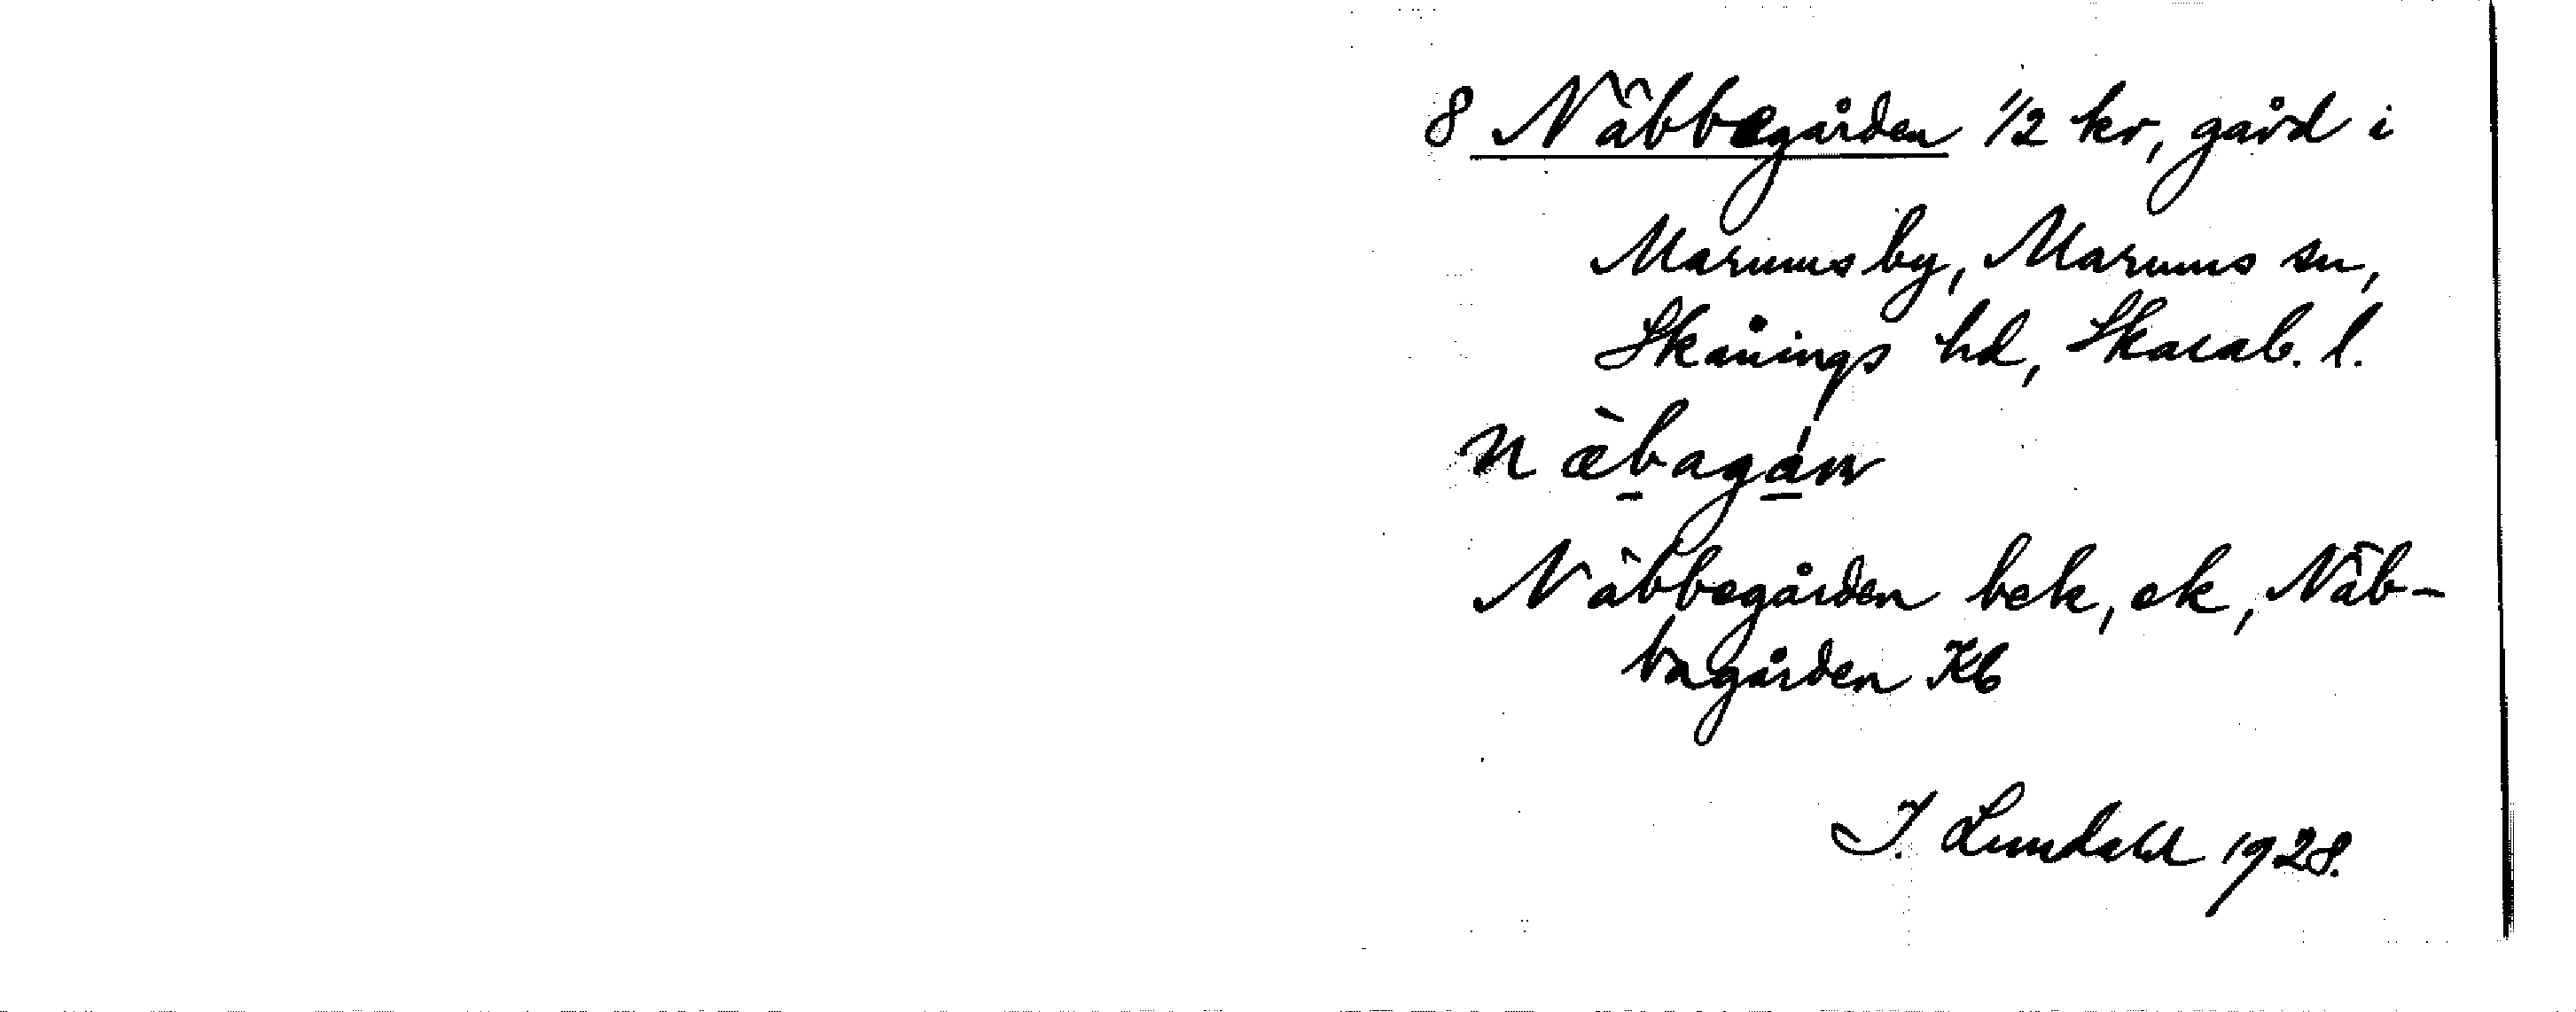 8 Näbbegården 1/2 kr, gård i
Marums by, Marums sn,
Skånings hd, Skarab. l.
Näbbegården bek, ek, Näb-
bagården Kb
I. Lundahl 1928.